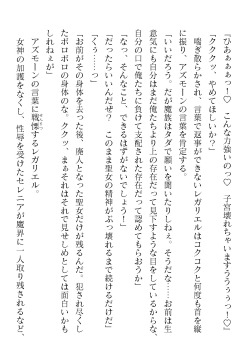 「ひああぁぁっ！♡　こんな方強いのっ♡　子宮壊れちゃいますぅうぅぅっ！♡」
「ククク、やめてほしいか？」
喘ぎ散らかされ、言葉で返事ができないレガリエルはコクコクと何度も首を縦
に振り、アズモーンの言葉を肯定する。
「いいだろう。だが魔族はタダで願いを聞いたりしねぇ。そうだな……お前は生
意気にも自分はまだ俺たちより上の存在だって見下すような目をしているからな、
自分の口で俺たちに負けて支配された存在だって認めてもらおうか」
「なっ、そんなこと、できるはずがないでしょう！」
「だったらいいんだぜ？　このまま聖女の精神がぶっ壊れるまで続けるだけだ」
「くぅ……っ」
「お前がその身体を去った後、廃人となった聖女だけが残るんだ。犯され尽くし
たボロボロの身体のな、ククッ、まぁそれはそれで見せしめとしては面白いかも
しれねぇが」
アズモーンの言葉に戦慄するレガリエル。
女神の加護をなくし、性辱を受けたセレニアが魔界に一人取り残されるなど、